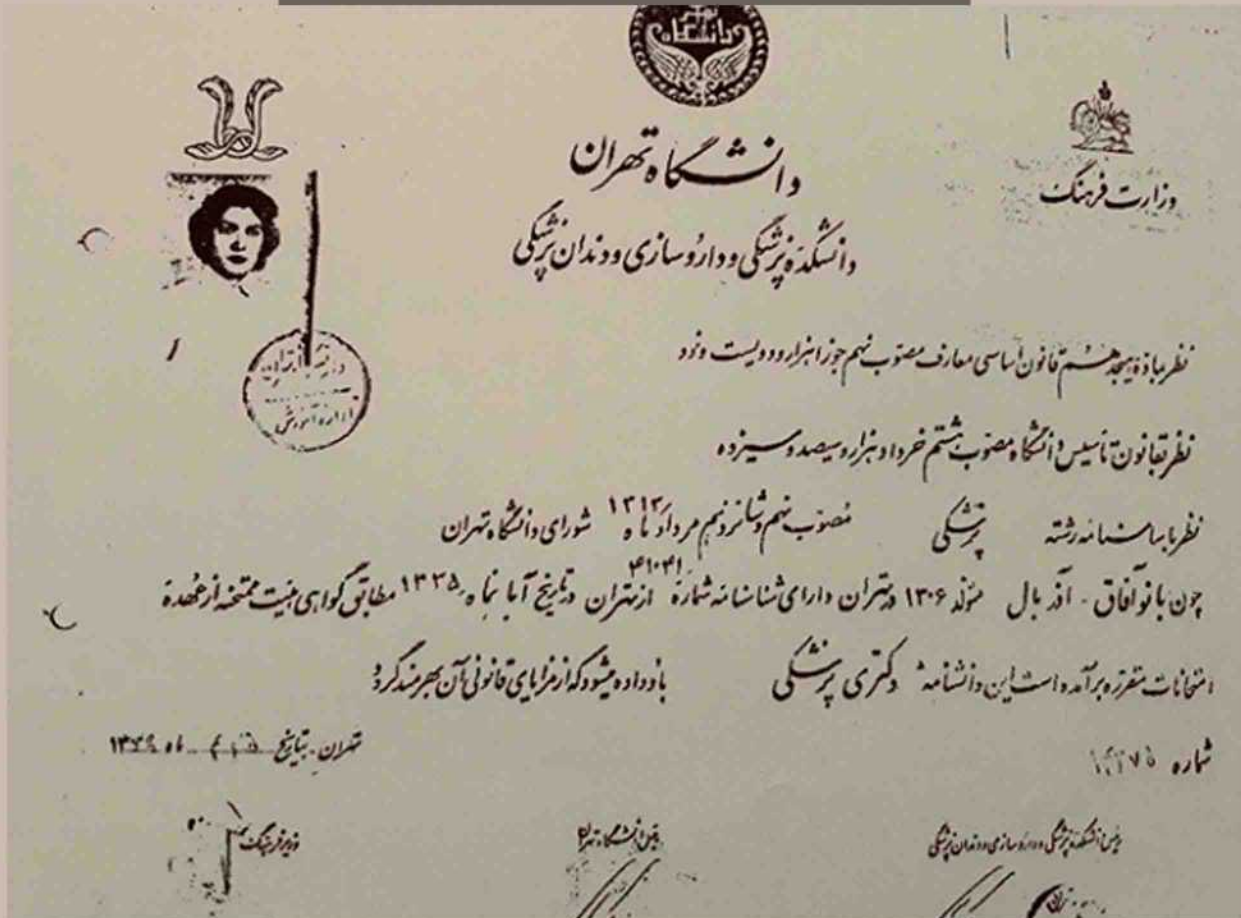 دانشگاه
دانشگاه تهران
وزارت فرهنگ
دانشکده پزشکی و داروسازی و دندان پزشکی
نظر بماده هیجدهم قانون اساسی معارف مصوب نهم جوزا هزار و دویست و نود
نظر بقانون تأسیس دانشگاه مصوب هشتم خرداد هزار و سیصد و سیزده
نظر باساسنامه رشته پزشکی مصوب نهم و شانزدهم مرداد ماه ۱۳۱۳ شورای دانشگاه تهران
چون بانو آفاق - آذر بال متولد ۱۳۰۶ در تهران دارای شناسنامه شماره ۴۱۰۳۱ از تهران در تاریخ آبا نماه ۱۳۳۵ مطابق گواهی هیئت ممتحنه از عهدهٔ
امتحانات مقرره برآمده است این دانشنامه دکتری پزشکی باو داده میشود که از مزایای قانونی آن بهره مند گردد
شماره تهران - بتاریخ ماه
رئیس دانشکده پزشکی و داروسازی و دندان پزشکی رئیس دانشگاه تهران وزیر فرهنگ